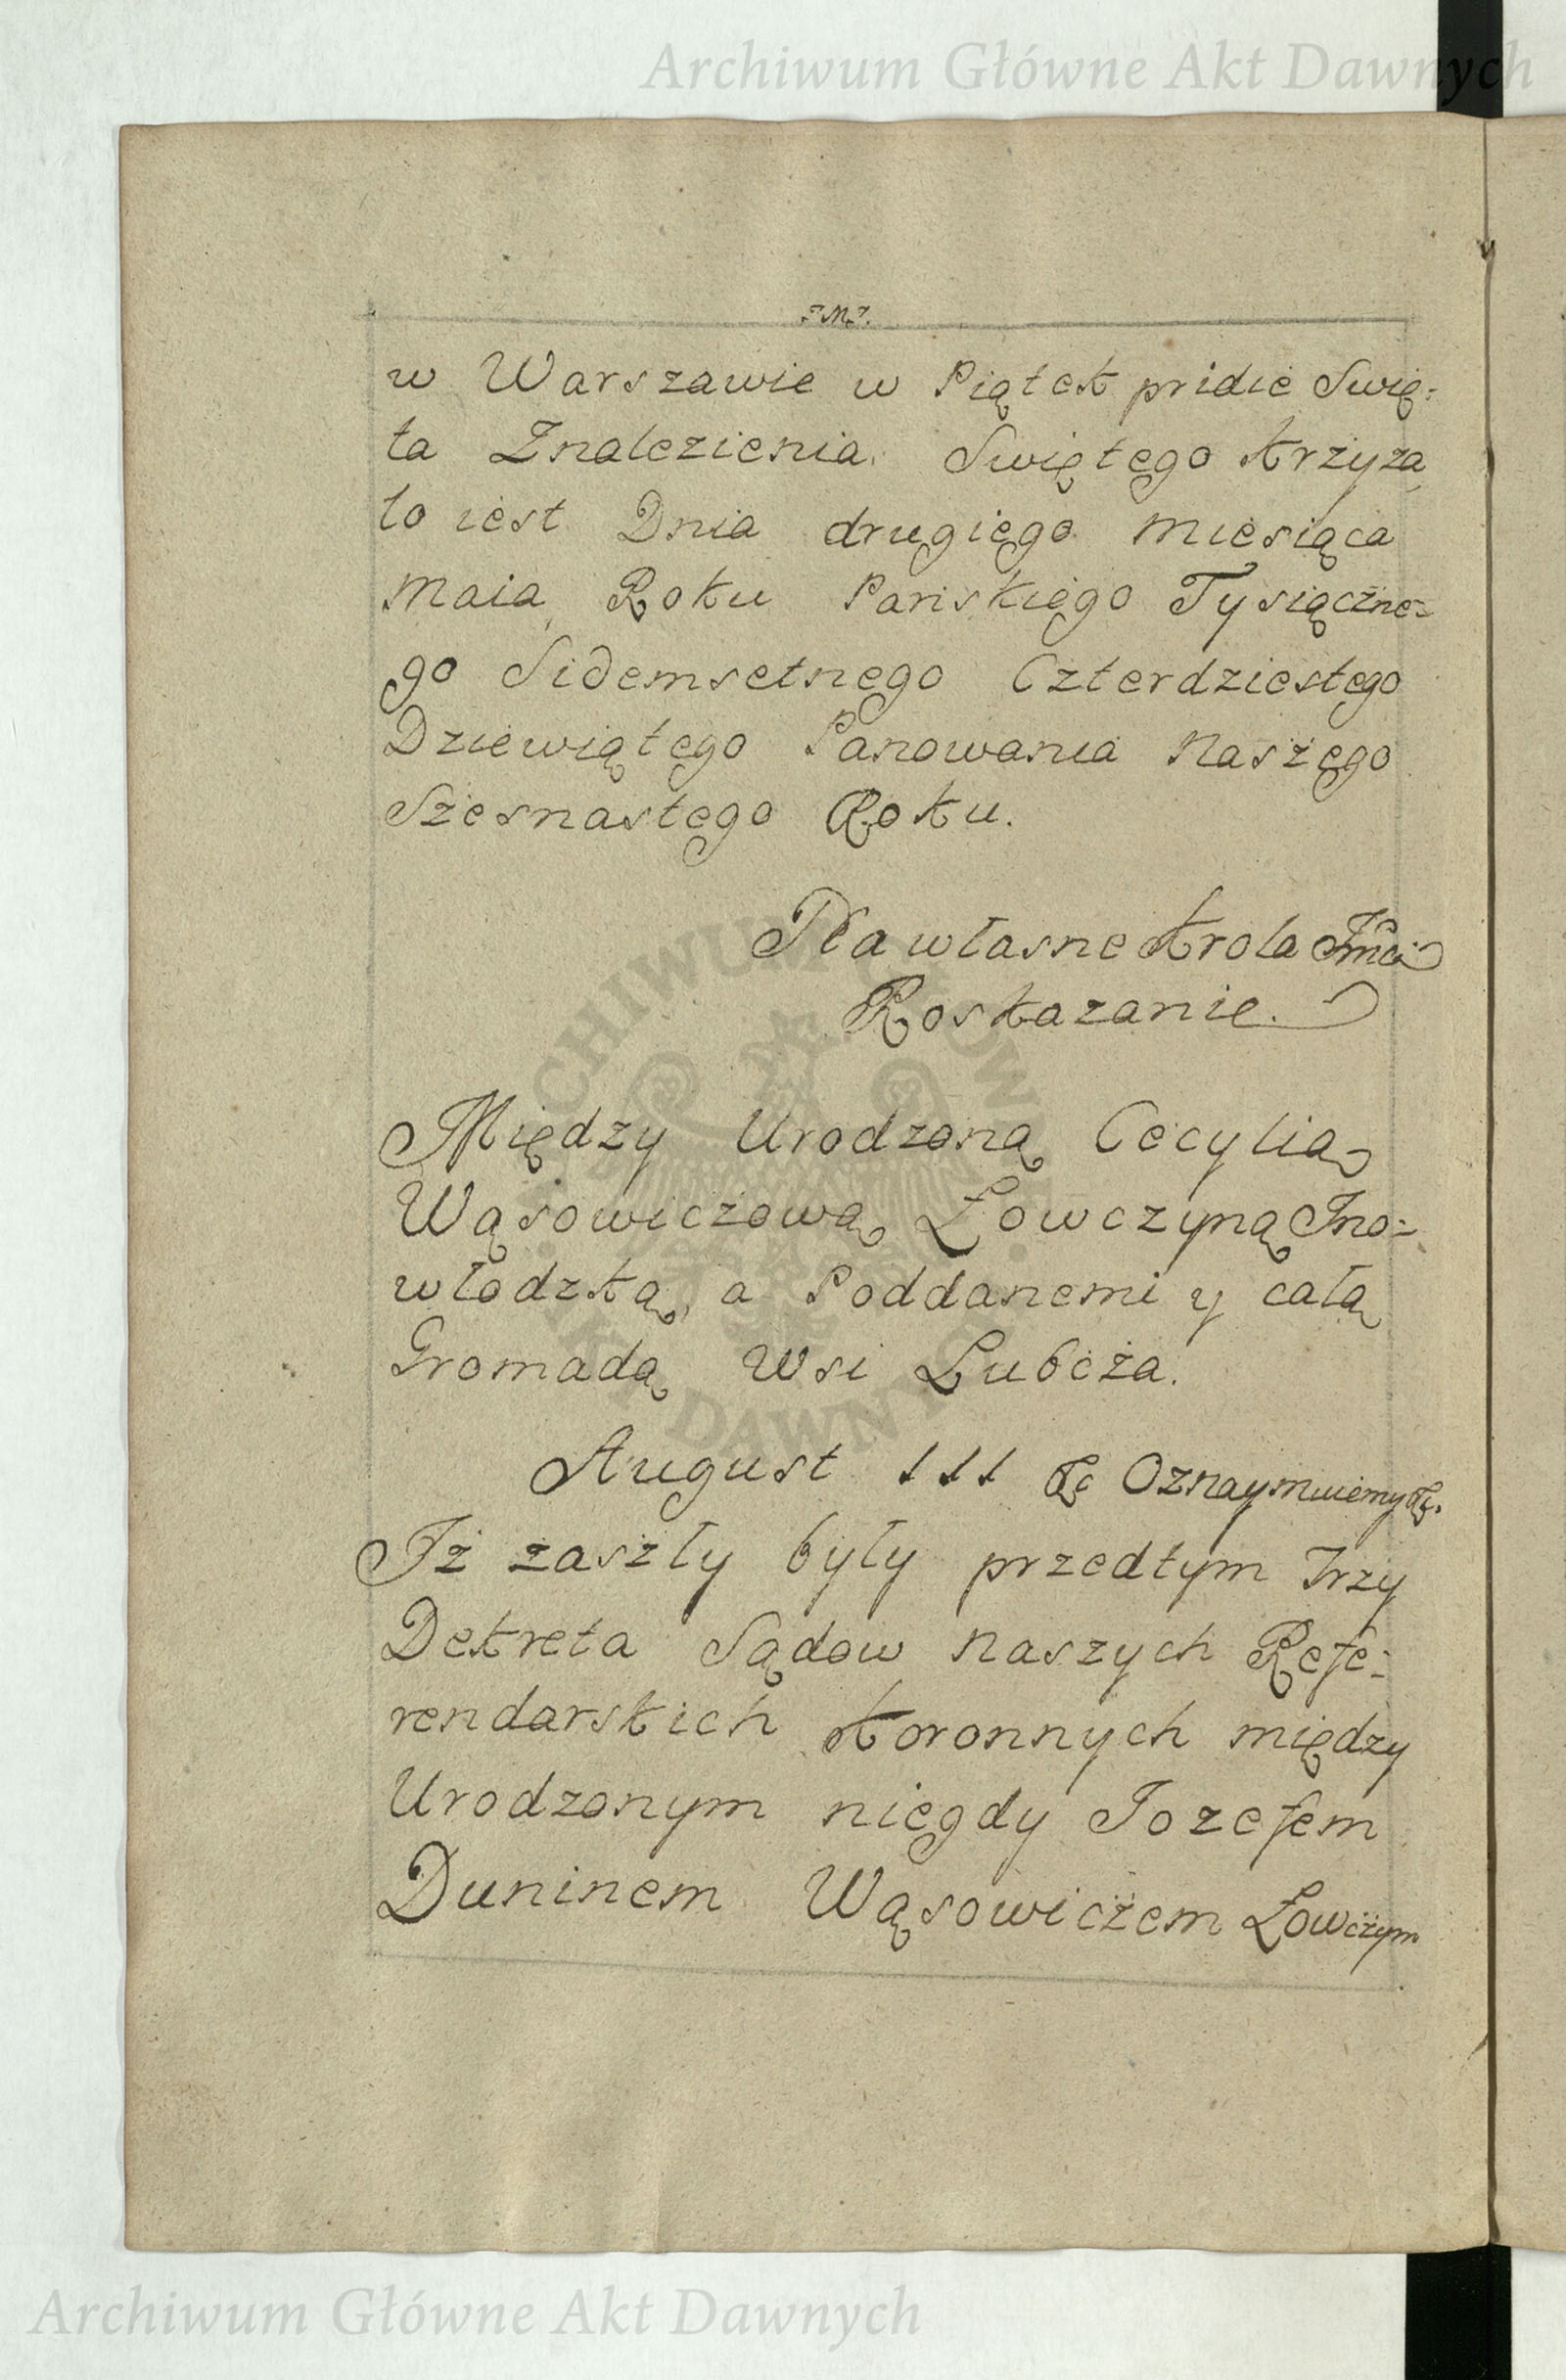 Archiwum Główne Akt Dawnych
w Warszawie w Piątek pridie Swię=
ta Znalezienia Swiętego Krzyza
to iest Dnia drugiego Miesiąca
Maia Roku Pańskiego Tysiączne=
go Sidemsetnego Czterdziestego
Dziewiątego Panowania Naszego
Szesnastego Roku.
Na własne Krola Jmci
Roskazanie.
Między Urodzoną Cecylią
Wąsowiczową Łowczyną Jno=
włodzką, a Poddanemi y całą
Gromadą Wsi Lubcza.
August III &c Oznaymuiemy &c.
Jż zaszły były przedtym Trzy
Dekreta Sądow Naszych Refe=
rendarskich Koronnych między
Urodzonym niegdy Jozefem
Duninem Wąsowiczem Łowczym
Archiwum Główne Akt Dawnych